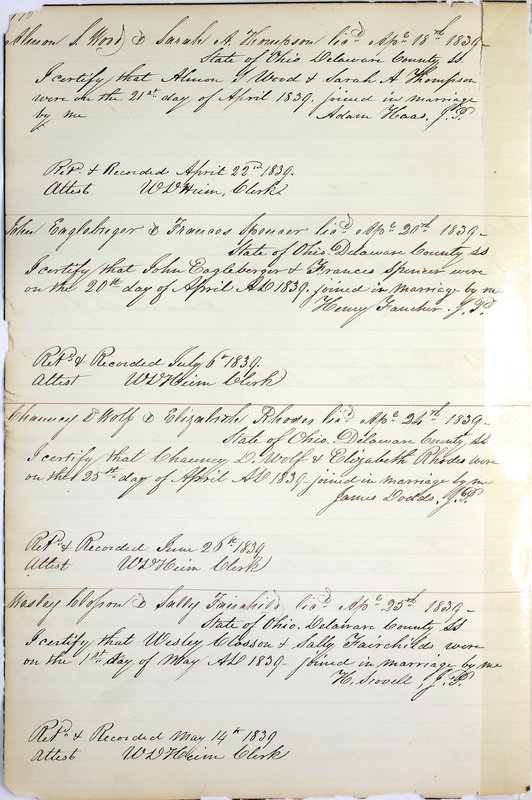 Almon S. Wood & Sarah A. Thompson licd Apl 18th 1839-
State of Ohio Delaware County ss
I certify that Almon S Wood & Sarah A Thompson
were on the 21st day of April 1839. joined in marriage
by me Adam Haas, J.P.
Retd & Recorded April 22nd 1839.
Attest W D Heim, Clerk
John Eagleberger & Frances Spencer licd Apl 20th 1839-
State of Ohio. Delaware County ss
I certify that John Eagleberger & Frances Spencer were
on the 20th day of April AD 1839. joined in marriage by me
Henry Faucher, J.P.
Retd & Recorded July 6th 1839.
Attest W D Heim Clerk
Chauncy D Wolf & Elizabeth Rhodes licd Apl 24th 1839-
State of Ohio. Delaware County, ss
I certify that Chauncy D. Wolf & Elizabeth Rhodes were
on the 25th day of April AD 1839 joined in marriage by me
James Dodds, J.P.
Retd & Recorded June 26th 1839
Attest W D Heim Clerk
Wesley Closson & Sally Fairchilds licd Apl 25th 1839-
State of Ohio. Delaware County ss
I certify that Wesley Closson & Sally Fairchilds were
on the 1st day of May AD 1839 joined in marriage by me
H. Scovell, J.P.
Retd & Recorded May 14th 1839
Attest W D Heim Clerk